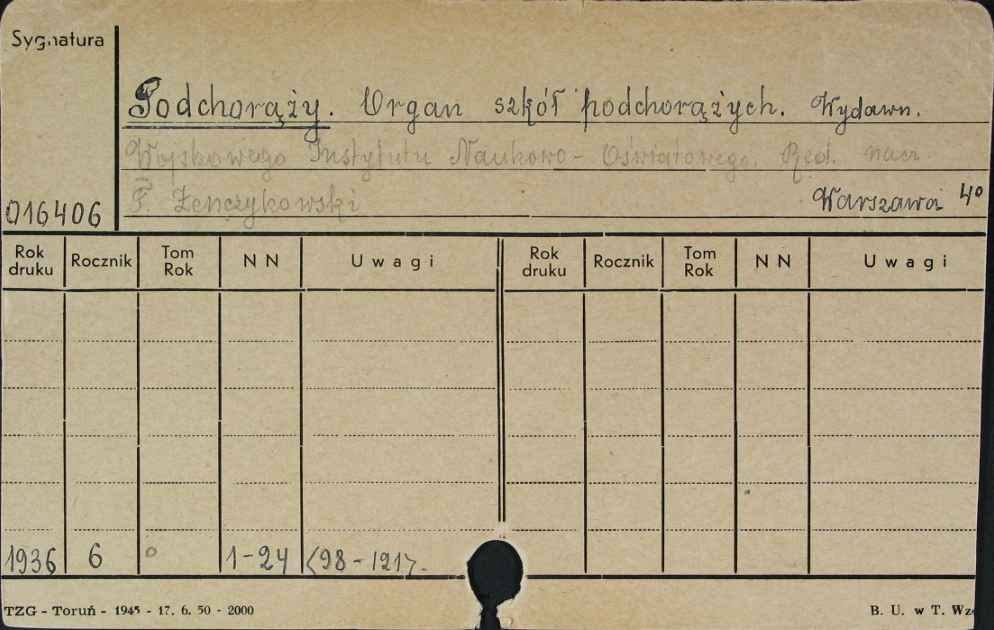 Sygnatura
Podchorąży. Organ szkół podchorążych. Wydawn.
Wojskowego Instytutu Naukowo-Oświatowego. Red. nacz.
T. Żenczykowski Warszawa 4º
016406
Rok druku Rocznik Tom Rok NN Uwagi Rok druku Rocznik Tom Rok NN Uwagi
1936 6 1-24 <98-121>.
TZG - Toruń - 1945 - 17. 6. 50 - 2000 B. U. w T. Wz